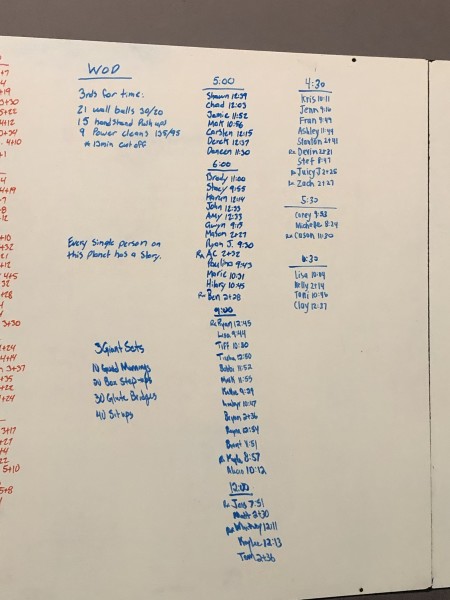 WOD
3rds for time:
21 wall balls 30/20
15 handstand Push ups
9 Power cleans 135/95
* 13min cut off
Every Single person on
this Planet has a Story.
3 Giant Sets
10 Good Mornings
20 Box Step-ups
30 Glute Bridges
40 Sit ups
5:00
Shawn 12:39
Chad 12:03
Jamie 11:52
Mak 10:56
Carsten 12:15
Derek 12:37
Doreen 11:30
6:00
Brody 11:00
Stacy 9:55
Karen 12:14
John 12:33
Amy 12:33
Gwyn 9:15
Mason 2+27
Ryan J. 9:30
Rx AC 2+32
Paulina 9:43
Marie 10:31
Hilary 10:45
Rx Ben 2+28
9:00
Rx Ryan 12:45
Lisa 9:44
Tiff 10:30
12:50
Bobbi 11:52
Mark 11:55
9:29
10:47
Bryan 2+36
12:54
Brent 8:51
Rx Kyle 8:57
Alicia 10:12
12:00
Rx Jess 7:51
Matt 2+30
Rx Whitney 12:11
Kaylee 12:13
Tom 2+36
4:30
Kris 10:11
Jenn 9:16
Fran 9:49
Ashley 11:44
Stanton 2+41
Rx Devin 2+21
Stef 8:47
Rx Juicy J 2+28
Rx Zach 2+27
5:30
Corey 9:53
Michelle 8:24
Rx Cuson 11:30
6:30
Lisa 10:09
Kelly 2+14
Toni 10:46
Clay 12:37